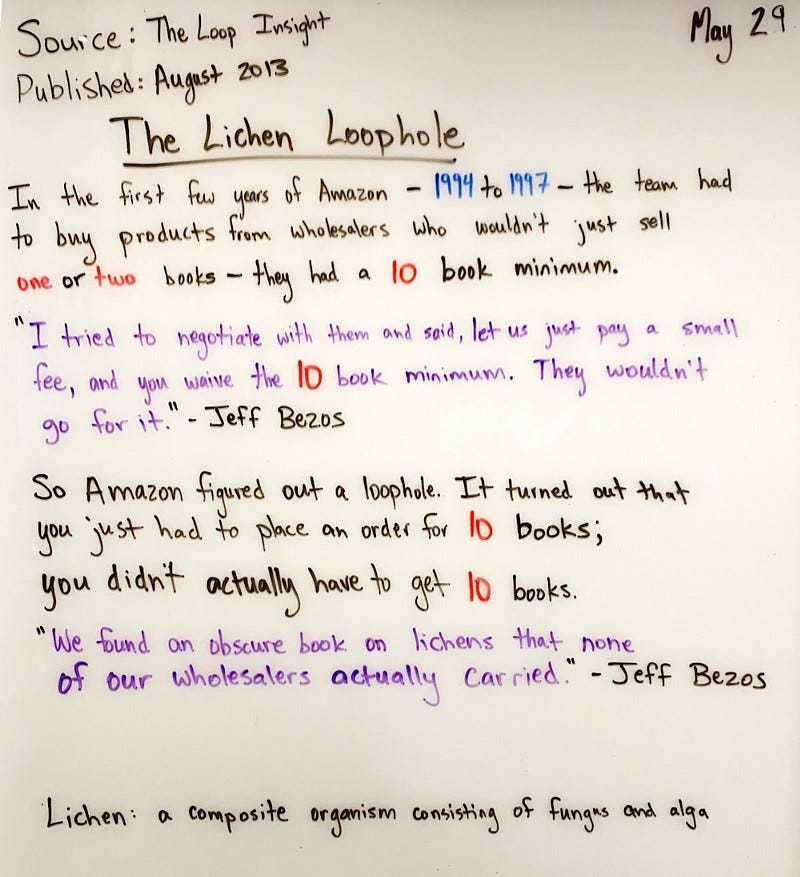 Source: The Loop Insight
May 29
Published: August 2013
The Lichen Loophole
In the first few years of Amazon - 1994 to 1997 - the team had
to buy products from wholesalers who wouldn't just sell
one or two books - they had a 10 book minimum.
"I tried to negotiate with them and said, let us just pay a small
fee, and you waive the 10 book minimum. They wouldn't
go for it." - Jeff Bezos
So Amazon figured out a loophole. It turned out that
you just had to place an order for 10 books;
you didn't actually have to get 10 books.
"We found an obscure book on lichens that none
of our wholesalers actually carried." - Jeff Bezos
Lichen: a composite organism consisting of fungus and alga